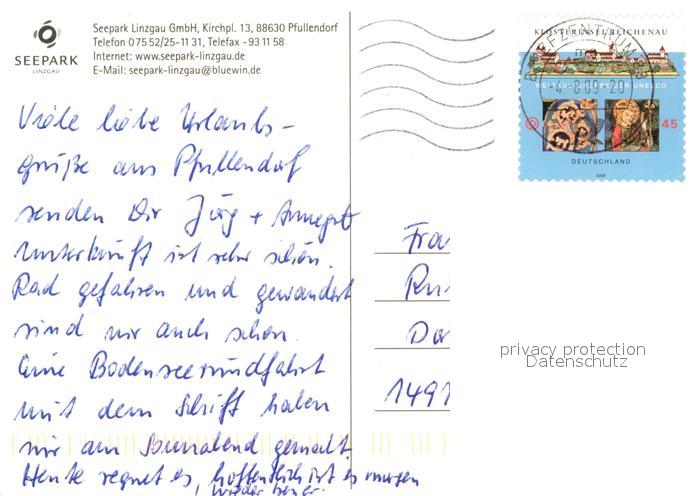 SEEPARK
LINZGAU
Seepark Linzgau GmbH, Kirchpl. 13, 88630 Pfullendorf
Telefon 0 75 52/25-11 31, Telefax -93 11 58
Internet: www.seepark-linzgau.de
E-Mail: seepark-linzgau@bluewin.de
Viele liebe Urlaubs-
grüße aus Pfullendorf
senden Dir Jörg + Annegret
Unterkunft ist sehr schön.
Rad gefahren und gewandert
sind wir auch schon.
Eine Bodenseerundfahrt
mit dem Schiff haben
wir am Sonnabend gemacht.
Heute regnet es, hoffentlich ist es morgen
wieder besser.
KLOSTERINSEL REICHENAU
BRIEFZENTRUM
WELTKULTURERBE DER UNESCO
45
DEUTSCHLAND
2008
Frau
1491
privacy protection
Datenschutz